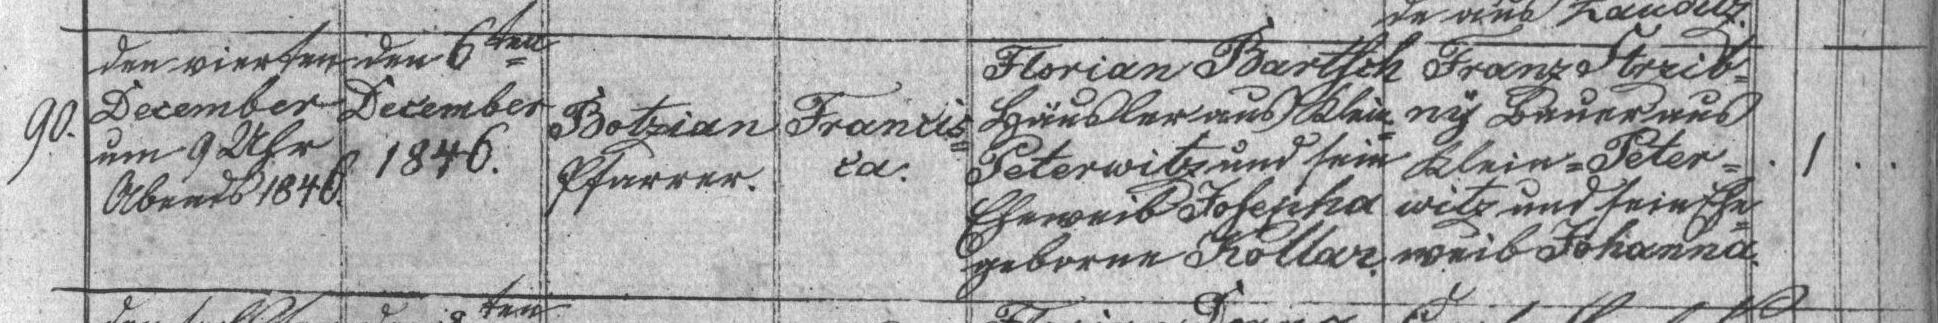 de aus
90.
den vierten
December
um 9 Uhr
Abends 1846.
den 6ten
December
1846.
Botzian
Pfarrer.
Francis=
ca.
Florian Bartsch
Häusler aus Klein=
Peterwitz und sein
Eheweib Josepha
geborne Kollar.
Franz Strzib=
ny Bauer aus
Klein=Peter=
witz und sein Ehe=
weib Johanna.
. 1 . .
ten